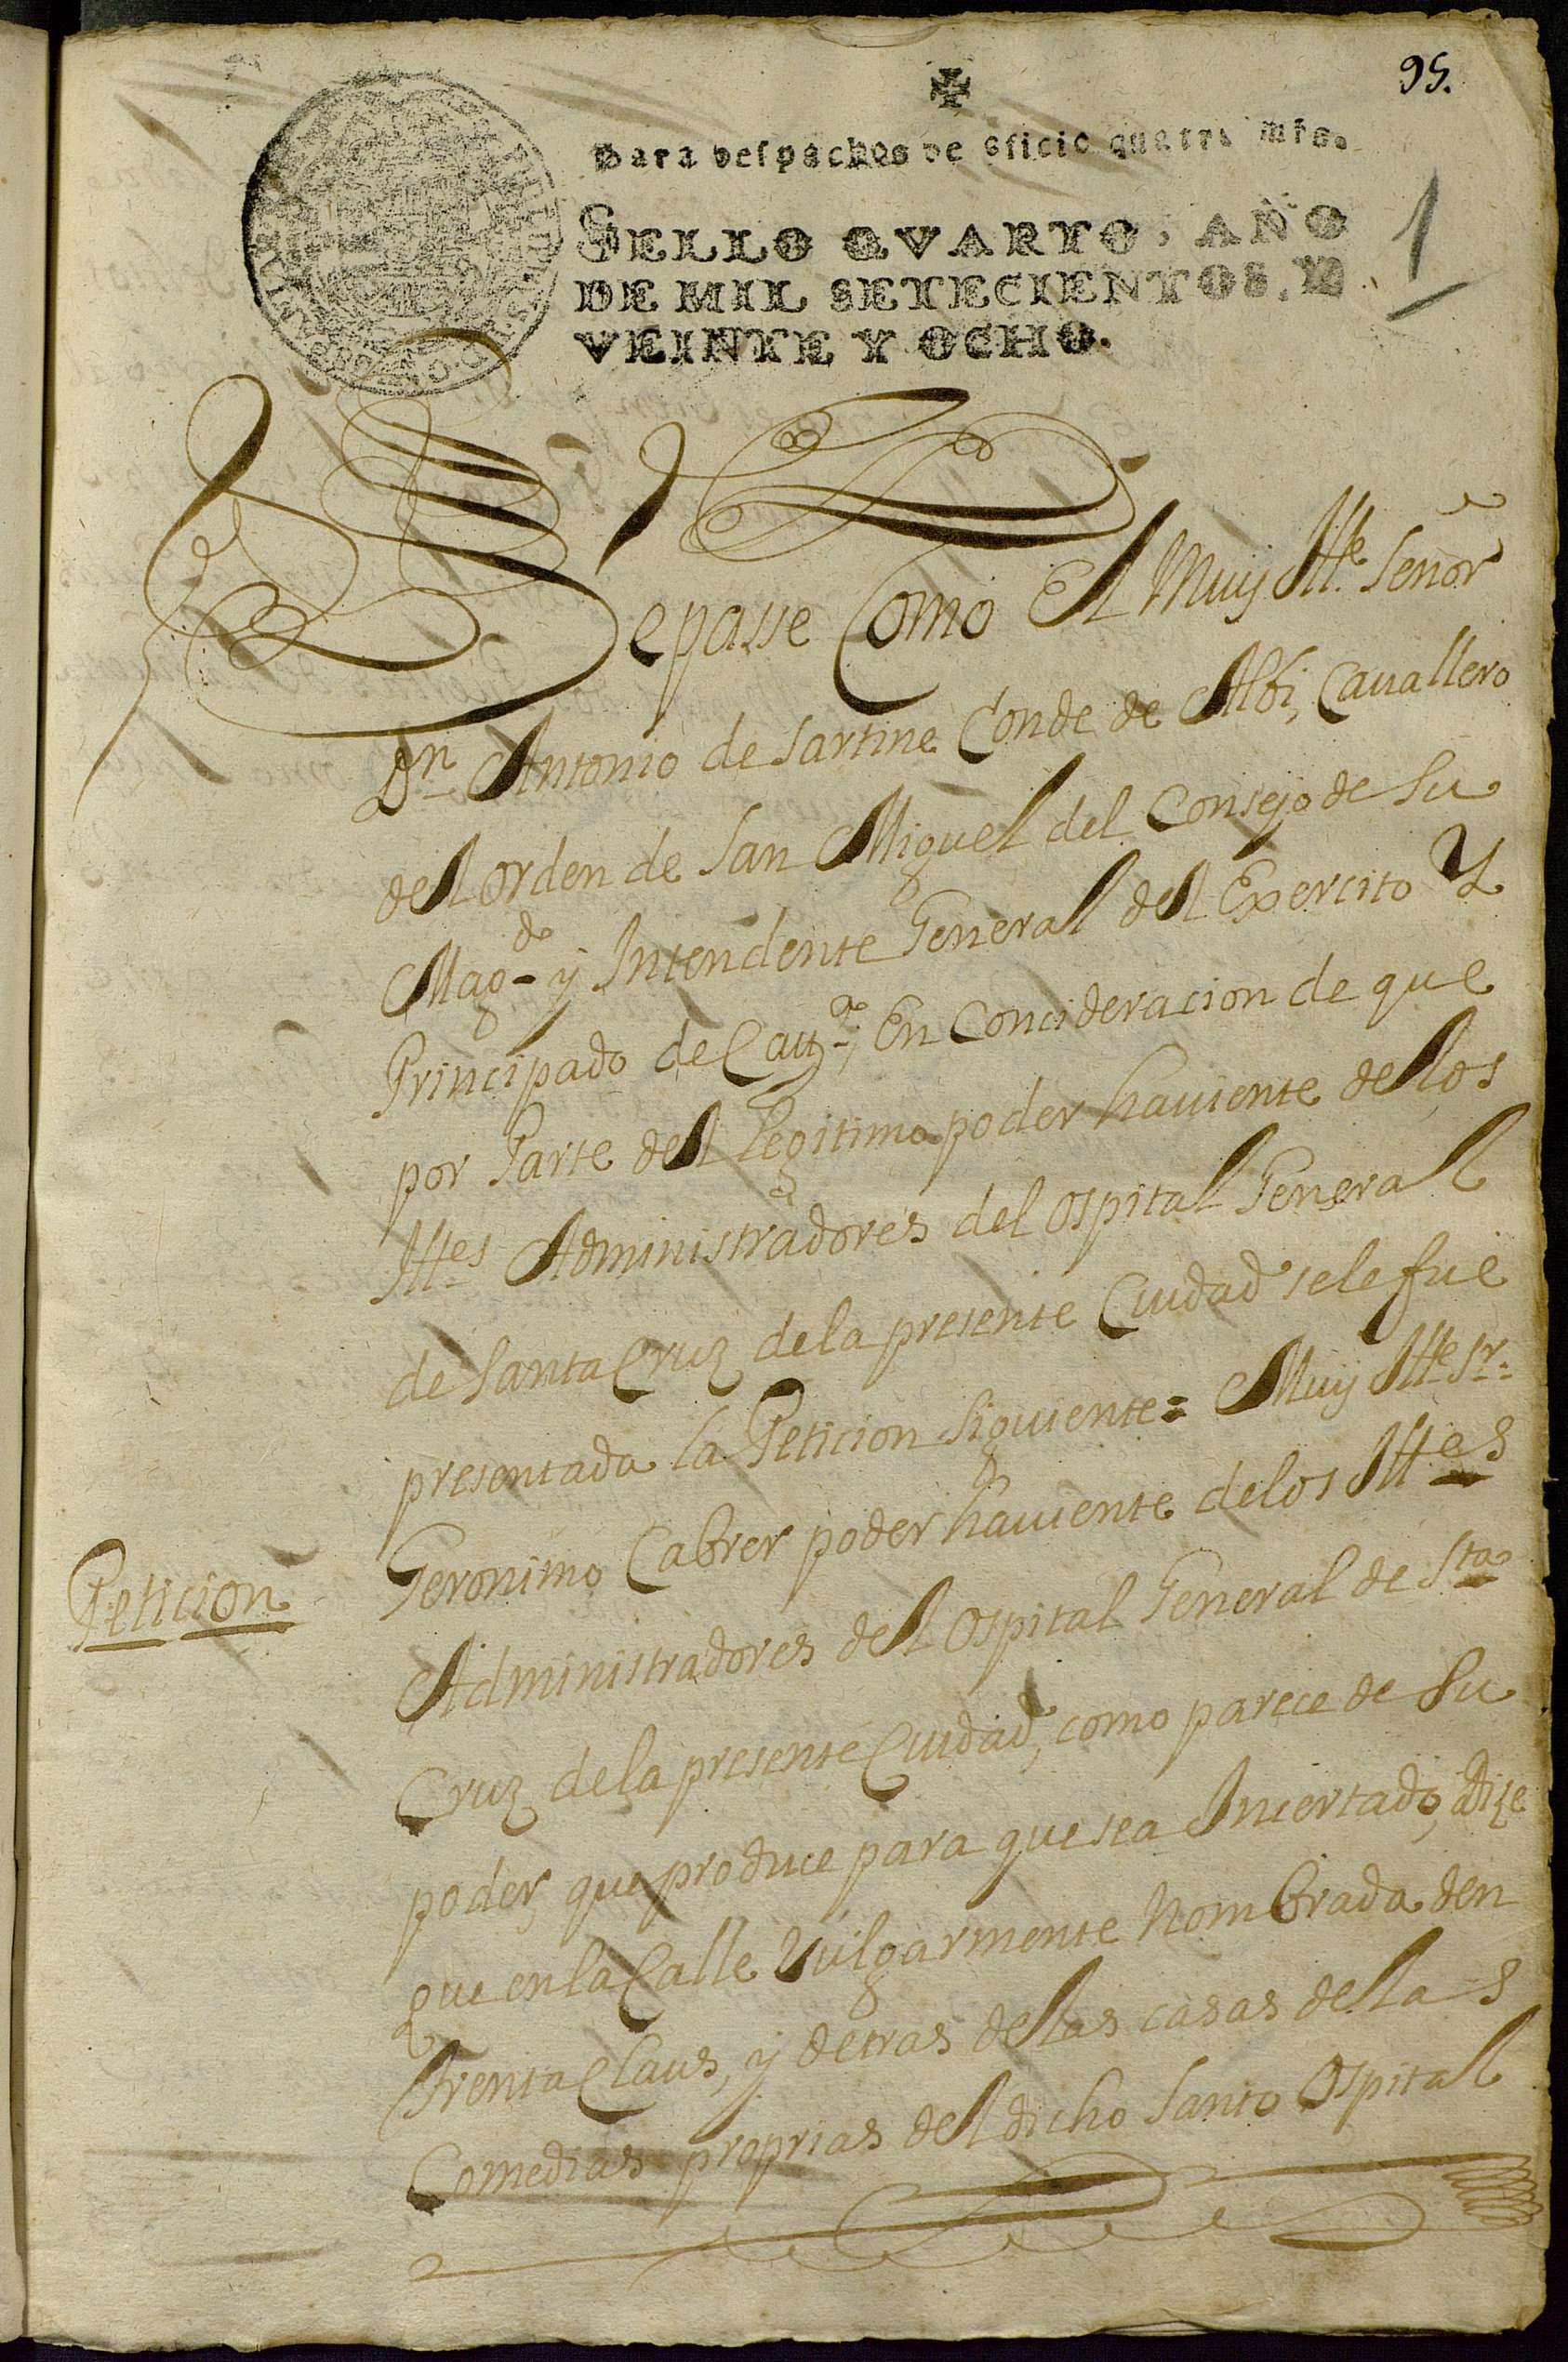 95.
Para despachos de oficio quatro mrs.
SELLO QVARTO, AÑO
DE MIL SETECIENTOS, Y
VEINTE Y OCHO.
1
Sepasse Como El Muy Itte. Señor
Dn. Antonio de Sartine Conde de Albi, Cavallero
del orden de San Miguel del Consejo de Su
Magd. y Intendente General del Exercito Y
Principado de Catta., En Concideracion de que
por Parte del Legitimo poder haviente de los
Ittes Administradores del Ospital General
de Santa Cruz de la presente Ciudad se le fue
presentada la Peticion Siguiente = Muy Itte Sr.
Peticion
Geronimo Cabrer poder haviente de los Ittes
Administradores del Ospital General de Sta.
Cruz de la presente Ciudad, como parece de Su
poder, que produce para que sea Incertado, Dize
que en la Calle Vulgarmente Nombrada den
Trenta Claus, y detras de las casas de las
Comedias proprias del dicho Santo Ospital